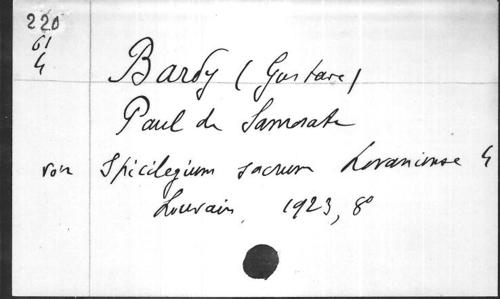 220
61
4
Bardy (Gustave)
Paul de Samosate
voir Spicilegium sacrum Lovaniense 4
Louvain, 1923, 8°